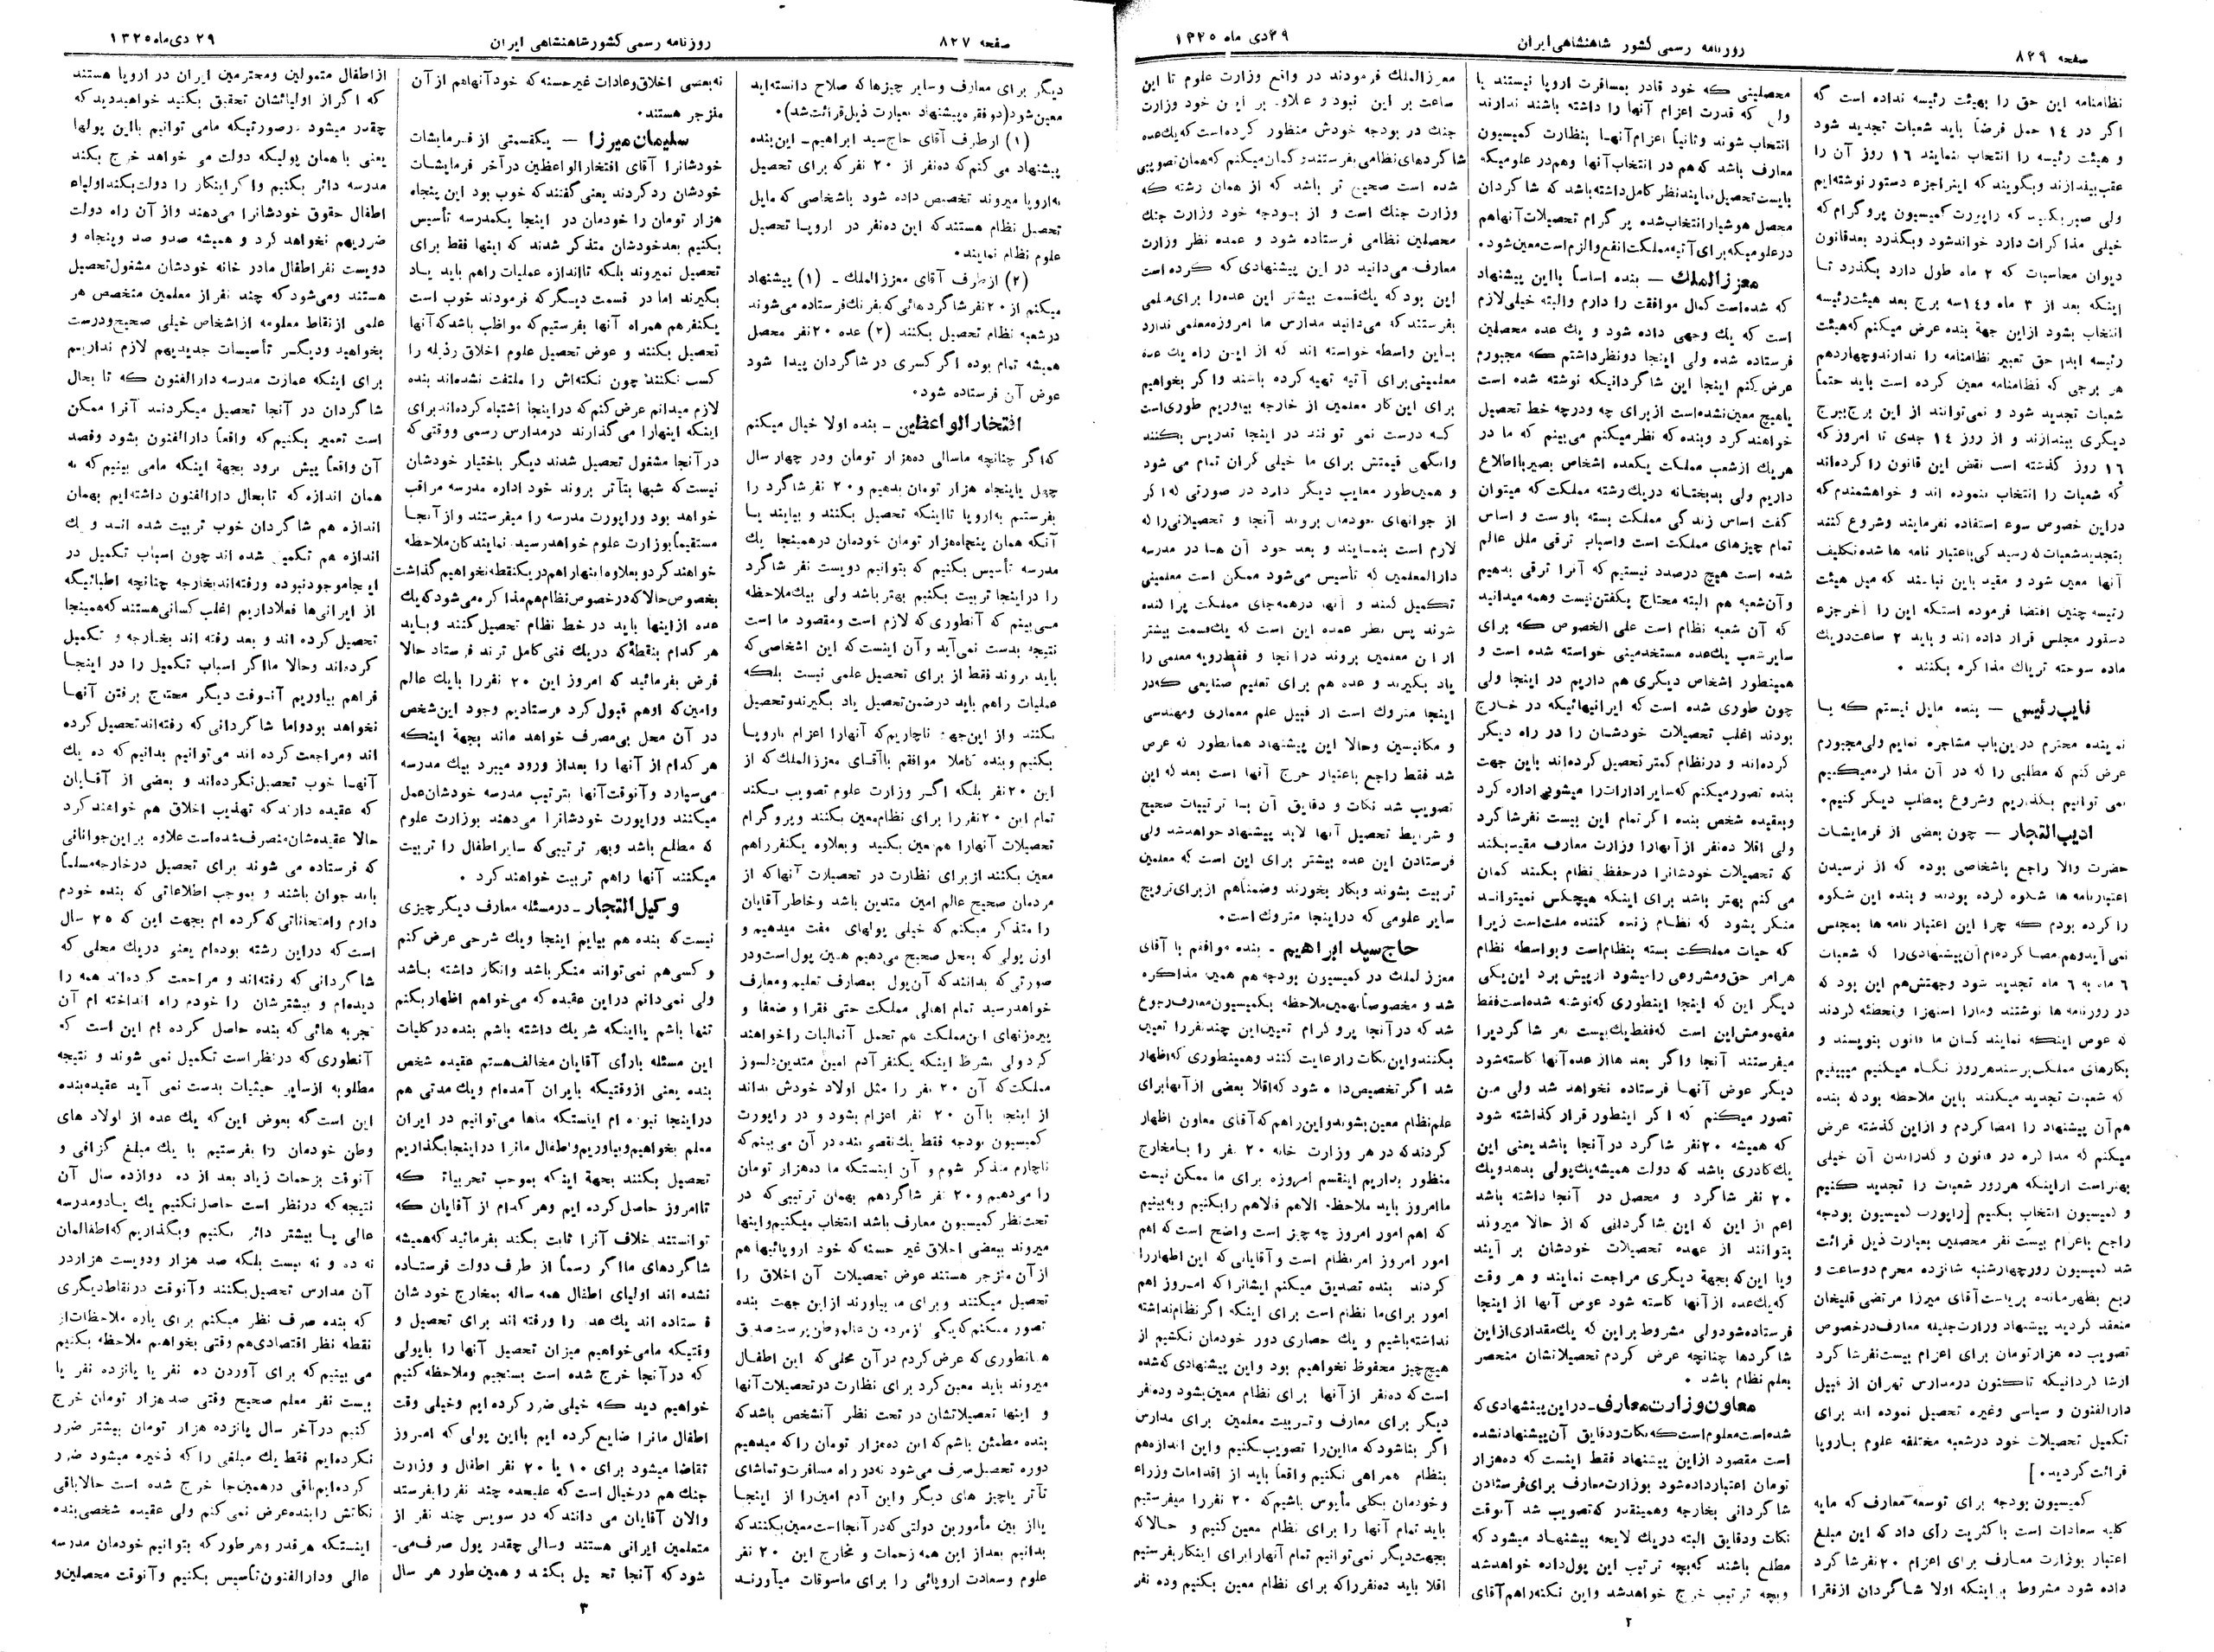 صفحه ۸۲۹
روزنامه رسمی کشور شاهنشاهی ایران
۲۹دی ماه ۱۳۲۵
نظامنامه این حق را بهیئت رئیسه نداده است که
اگر در ۱۴ حمل فرضاً باید شعبات تجدید شود
و هیئت رئیسه را انتخاب بنمایند ۱۶ روز آن را
عقب بیندازند وبگویند که اینراجزء دستور نوشته‌ایم
ولی صبر بکنید که راپورت کمیسیون پروگرام که
خیلی مذاکرات دارد خوانده‌شود وبگذرد بعدقانون
دیوان محاسبات که ۲ ماه طول دارد بگذرد تا
اینکه بعد از ۳ ماه و۱۴سه برج بعد هیئت‌رئیسه
انتخاب بشود ازاین جهة بنده عرض میکنم که‌هیئت
رئیسه ابدا حق تعبیر نظامنامه را ندارندوچهاردهم
هر برجی که نظامنامه معین کرده است باید حتماً
شعبات تجدید شود و نمی‌توانند از این برج‌ببرج
دیگری بیندازند و از روز ۱۴ جدی تا امروز که
۱۶ روز گذشته است نقض این قانون را کرده‌اند
که شعبات را انتخاب ننموده اند و خواهشمندم که
دراین خصوص سوء استفاده نفرمایند وشروع کنند
آنها معین شود و مقید باین نباشند که میل هیئت
رئیسه چنین اقتضا فرموده استکه این را آخرجزء
دستور مجلس قرار داده اند و باید ۲ ساعت‌دریك
ماده سوخته تریاك مذاکره بکنند .
نایب رئیس — بنده مایل نیستم که با
نماینده محترم دراین‌باب مشاجره نمایم ولی‌مجبورم
عرض کنم که مطلبی را که در آن مذاکره‌میکنیم
نمی توانیم بگذریم وشروع بمطلب دیگر کنیم.
ادیب‌التجار — چون بعضی از فرمایشات
حضرت والا راجع باشخاصی بوده که از نرسیدن
اعتبارنامه ها شکوه کرده بودند و بنده این شکوه
را کرده بودم که چرا این اعتبار نامه ها بمجلس
۶ ماه به ۶ ماه تجدید شود وجهتش‌هم این بود که
در روزنامه ها نوشتند ومارا استهزا وتخطئه کردند
که عوض اینکه نمایندگان ما قانون بنویسند و
بکارهای مملکت‌برسندهرروز نگاه میکنیم میبینیم
که شعبات تجدید میکنند باین ملاحظه بودکه بنده
هم‌آن پیشنهاد را امضا کردم و ازاین گذشته عرض
میکنم که مذاکره در قانون و گذراندن آن خیلی
بهتراست ازاینکه هرروز شعبات را تجدید کنیم
و کمیسیون انتخاب بکنیم [راپورت کمیسیون بودجه
راجع باعزام بیست نفر محصلین بعبارت ذیل قرائت
شد کمیسیون روزچهارشنبه شانزده محرم دوساعت و
ربع بظهرمانده بریاست‌آقای میرزا مرتضی قلیخان
منعقد گردید پیشنهاد وزارت‌جلیله معارف‌درخصوص
تصویب ده هزارتومان برای اعزام بیست‌نفرشاگرد
ازشاگردانیکه تاکنون درمدارس تهران از قبیل
دارالفنون و سیاسی وغیره تحصیل نموده اند برای
تکمیل تحصیلات خود درشعبه مختلفه علوم باروپا
قرائت گردید.]
کمیسیون بودجه برای توسعه معارف که مایه
کلیه سعادات است باکثریت رأی داد که این مبلغ
اعتبار بوزارت معارف برای اعزام ۲۰نفرشاگرد
داده شود مشروط براینکه اولا شاگردان ازفقرا
محصلینی که خود قادر بمسافرت اروپا نیستند یا
ولی که قدرت اعزام آنها را داشته باشند ندارند
انتخاب شوند وثانیاً اعزام‌آنها بنظارت کمیسیون
معارف باشد که‌هم در انتخاب‌آنها وهم‌در علومیکه
بایست‌تحصیل‌نمایندنظر کامل‌داشته‌باشد که شاگردان
محصل هوشیارانتخاب‌شده پرگرام تحصیلات‌آنهاهم
درعلومیکه‌برای‌آتیه‌مملکت‌انفع‌والزم‌است‌معین‌شود.
معززالملك — بنده اساساً بااین پیشنهاد
که شده‌است‌کمال موافقت را دارم والبته خیلی‌لازم
است که یك وجهی داده شود و یك عده محصلین
فرستاده شده ولی اینجا دونظرداشتم که مجبورم
عرض‌کنم اینجا این شاگردانیکه نوشته شده است
یاهیچ معین‌نشده‌است ازبرای چه ودرچه خط تحصیل
خواهند کرد وبنده که نظرمیکنم می‌بینم که ما در
هریك ازشعب مملکت یکعده اشخاص بصیربااطلاع
داریم ولی بدبختانه دریك رشته مملکت که میتوان
گفت اساس زندگی مملکت بسته باوست و اساس
تمام چیزهای مملکت است واسباب ترقی ملل عالم
شده است هیچ درصدد نیستیم که آنرا ترقی بدهیم
وآن‌شعبه هم البته محتاج بگفتن‌نیست وهمه میدانید
که آن شعبه نظام است علی الخصوص که برای
سایرشعب یك‌عده مستخدمینی خواسته شده است و
همینطور اشخاص دیگری هم داریم در اینجا ولی
چون طوری شده است که ایرانیهائیکه در خارج
بودند اغلب تحصیلات خودشان را در راه دیگر
کرده‌اند و درنظام کمتر تحصیل کرده‌اند باین جهت
بنده تصورمیکنم که‌سایرادارات‌را میشود اداره کرد
وبعقیده شخص بنده اگرتمام این بیست نفرشاگرد
ولی اقلا ده‌نفر ازآنهارا وزارت معارف مقیدبکند
که تحصیلات خودشانرا درحفظ نظام بکنند گمان
می کنم بهتر باشد برای اینکه هیچکس نمیتواند
منکر بشود که نظام زنده کننده ملت‌است زیرا
که حیات مملکت بسته بنظام‌است وبواسطه نظام
هرامر حق‌ومشروعی رامیشود ازپیش برد این‌یکی
دیگر این که اینجا اینطوری که‌نوشته شده‌است‌فقط
مفهومش‌این است که‌فقط‌یك‌بیست نفر شاگردرا
میفرستند آنجا واگر بعد هااز عده‌آنها کاسته‌شود
دیگر عوض آنها فرستاده نخواهد شد ولی من
تصور میکنم که اگر اینطور قرار گذاشته شود
که همیشه ۲۰نفر شاگرد درآنجا باشد یعنی این
یك‌کادری باشد که دولت همیشه‌یك‌پولی بدهدویك
۲۰ نفر شاگرد و محصل در آنجا داشته باشد
اعم از این که این شاگردانی که از حالا میروند
بتوانند از عهده تحصیلات خودشان بر آیند
ویا این‌که بجهة دیگری مراجعت نمایند و هر وقت
که‌یك‌عده ازآنها کاسته شود عوض آنها از اینجا
فرستاده‌شودولی مشروط براین که یك‌مقداری‌ازاین
شاگردها چنانچه عرض کردم تحصیلاتشان منحصر
بعلم نظام باشد .
معاون وزارت‌معارف–دراین‌پیشنهادی‌که
شده‌است‌معلوم‌است‌که‌نکات‌ودقایق آن‌پیشنهادنشده
است مقصود ازاین پیشنهاد فقط اینست که ده‌هزار
تومان اعتبارداده‌شود بوزارت‌معارف برای‌فرستادن
شاگردانی بخارجه وهمینقدر که‌تصویب شد آنوقت
نکات ودقایق البته دریك لایحه پیشنهاد میشود که
مطلع باشند که‌بچه ترتیب این پول‌داده خواهدشد
وبچه ترتیب خرج خواهدشد واین نکته‌راهم‌آقای
معززالملك فرمودند در واقع وزارت علوم تا این
ساعت بر این نبود و علاوه بر این خود وزارت
جنك در بودجه خودش منظور کرده‌است که‌یك‌عده
شاگردهای‌نظامی‌بفرستندوگمان‌میکنم که‌همان‌تصویبی
شده است صحیح تر باشد که از همان رشته که
وزارت جنك است و از بودجه خود وزارت جنك
محصلین نظامی فرستاده شود و عمده نظر وزارت
معارف‌می‌دانید در این پیشنهادی که کرده است
این بودکه یك‌قسمت بیشتر این عده‌را برای‌معلمی
بفرستند که می‌دانید مدارس ما امروزه‌معلمی ندارد
باین واسطه خواسته اند که از این راه یك عده
معلمینی‌برای آتیه تهیه‌کرده باشند واگر بخواهیم
برای این‌کار معلمین از خارجه بیاوریم طوری‌است
که درست نمی توانند در اینجا تدریس بکنند
وانگهی قیمتش برای ما خیلی گران تمام می شود
و همین‌طور معایب دیگر دارد در صورتی که اگر
از جوانهای خودمان بروند آنجا و تحصیلاتی‌را که
لازم است بنمایند و بعد خود آن ها در مدرسه
دارالمعلمین که تأسیس می‌شود ممکن است معلمینی
تکمیل کنند و آنها درهمه‌جای مملکت پراکنده
شوند پس نظر عمده این است که یك‌قسمت بیشتر
از این معلمین بروند درآنجا و فقط‌رویه معلمی را
یاد بگیرند و عده هم برای تعلیم صنایعی که‌در
اینجا متروك است از قبیل علم معماری ومهندسی
و مکانیسین وحالا این پیشنهاد همانطور که عرض
شد فقط راجع باعتبار خرج آنها است بعد که این
تصویب شد نکات و دقایق آن با ترتیبات صحیح
و شرایط تحصیل آنها لابد پیشنهاد خواهدشد ولی
فرستادن این عده بیشتر برای این است که معلمین
تربیت بشوند وبکار بخورند وضمناًهم ازبرای‌ترویج
سایر علومی که دراینجا متروك است.
حاج‌سید ابراهیم – بنده موافقم با آقای
معززلملك در کمیسیون بودجه هم همین مذاکره
شد و مخصوصاًبهمین‌ملاحظه بکمیسیون‌معارف‌رجوع
شد که درآنجا پروگرام تعیین‌این چندنفررا تعیین
بکنندواین‌نکات رارعایت کنند وهمینطوری که‌اظهار
شد اگرتخصیص‌داده شود که‌اقلا بعضی ازآنهابرای
علم‌نظام معین بشوندواین‌راهم که‌آقای معاون اظهار
کردندکه درهر وزارت خانه ۲۰ نفر را بامخارج
منظور بداریم اینقسم امروزه برای ما ممکن نیست
ماامروز باید ملاحظه الاهم فالاهم رابکنیم وببینیم
که اهم امور امروز چه چیز است واضح است‌که اهم
امور امروز امرنظام است و آقایانی‌که این اظهاررا
کردند بنده تصدیق میکنم ایشانراکه امروز اهم
امور برای‌ما نظام است برای اینکه اگرنظام‌نداشته
نداشته‌باشیم و یك حصاری دور خودمان نکشیم از
هیچ‌چیز محفوظ نخواهیم بود واین پیشنهادی‌که‌شده
است‌که ده‌نفر ازآنها برای نظام معین‌بشود وده‌نفر
دیگر برای معارف وتربیت معلمین برای مدارس
اگر بناشودکه مااین‌را تصویب‌نکنیم واین اندازه‌هم
بنظام همراهی نکنیم واقعاً باید از اقدامات وزراء
وخودمان بکلی مأیوس باشیم‌که ۲۰ نفررا میفرستیم
باید تمام آنها را برای نظام معین کنیم و حالا که
بجهت‌دیگر نمی‌توانیم تمام آنهارابرای اینکاربفرستیم
اقلا باید ده‌نفرراکه برای نظام معین بکنیم وده نفر
۲
صفحه ۸۲۷
روزنامه رسمی کشور شاهنشاهی ایران
۲۹ دی‌ماه ۱۳۲۵
دیگر برای معارف وسایر چیزهاکه صلاح دانسته‌اید
معین‌شود(دوفقره‌پیشنهاد بعبارت ذیل‌قرائت‌شد).
(۱) ازطرف آقای حاج‌سید ابراهیم– این‌بنده
پیشنهاد می کنم‌که ده‌نفر از ۲۰ نفرکه برای تحصیل
به‌اروپا میروند تخصیص داده شود باشخاصی که‌مایل
تحصیل نظام هستند که این ده‌نفر در اروپا تحصیل
علوم نظام نمایند.
(۲) ازطرف آقای معززالملك – (۱) پیشنهاد
میکنم از۲۰نفرشاگردهائی‌که‌بفرنك‌فرستاده می‌شوند
درشعبه نظام تحصیل بکنند (۲) عده ۲۰نفر محصل
همیشه تمام بوده اگرکسری در شاگردان پیدا شود
عوض آن فرستاده شود.
افتخارالواعظین – بنده اولا خیال میکنم
که‌اگر چنانچه ماسالی ده‌هزار تومان ودر چهار سال
چهل یاپنجاه هزار تومان بدهیم و۲۰ نفرشاگرد را
بفرستیم به‌اروپا تااینکه تحصیل بکنند و بیایند یا
آنکه همان پنجاه‌هزار تومان خودمان درهمینجا یك
مدرسه تأسیس بکنیم که بتوانیم دویست نفر شاگرد
را دراینجا تربیت بکنیم بهترباشد ولی بیك‌ملاحظه
می‌بینم که آنطوری‌که لازم است ومقصود ما است
نتیجه بدست نمی‌آید وآن اینست‌که این اشخاصی‌که
باید بروند فقط از برای تحصیل علمی نیست بلکه
عملیات راهم باید درضمن‌تحصیل یاد بگیرندوتحصیل
بکنند واز این‌جهت ناچاریم‌که آنهارا اعزام باروپا
بکنیم وبنده کاملا موافقم باآقای معززالملك‌که از
این ۲۰نفر بلکه اگر وزارت علوم تصویب بکند
تمام این ۲۰نفررا برای نظام‌معین بکنند وپروگرام
تحصیلات آنهارا هم‌معین بکنید وبعلاوه یکنفرراهم
معین بکنند ازبرای نظارت در تحصیلات آنهاکه از
مردمان صحیح عالم امین متدین باشد وخاطرآقایان
را متذکر میکنم که خیلی پولهای مفت میدهیم و
اول پولی که بمحل صحیح می‌دهیم همین پول‌است‌ودر
صورتی‌که بدانندکه آن‌پول بمصارف تعلیم ومعارف
خواهدرسید تمام اهالی مملکت حتی فقرا و ضعفا و
پیرزنهای این‌مملکت هم تحمل آنمالیات راخواهند
کردولی بشرط اینکه یکنفر آدم امین متدین‌دلسوز
مملکت‌که آن ۲۰ نفر را مثل اولاد خودش بداند
از اینجا باآن ۲۰ نفر اعزام بشود و در راپورت
کمیسیون بودجه فقط یك‌نقصی‌بنده در آن می‌بینم‌که
ناچارم متذکر شوم و آن اینستکه ما ده‌هزار تومان
را می‌دهیم و۲۰ نفر شاگردهم بهمان ترتیبی‌که در
تحت‌نظر کمیسیون معارف باشد انتخاب میکنیم‌واینها
میروند ببعضی اخلاق غیر حسنه‌که خود اروپائیهاهم
از آن منزجر هستند عوض تحصیلات آن اخلاق را
تحصیل میکنند وبرای ما بیاورند ازاین جهت بنده
همانطوری‌که عرض‌کردم درآن محلی‌که این اطفال
میروند باید معین‌کرد برای نظارت درتحصیلات‌آنها
و اینها تحصیلاتشان در تحت نظر آنشخص باشدکه
بنده مطمئن باشم‌که این ده‌هزار تومان راکه میدهیم
دوره تحصیل‌صرف می‌شود نه‌در راه مسافرت‌وتماشای
تآتر یاچیز های دیگر واین آدم امین‌را از اینجا
یااز بین مأمورین دولتی‌که‌درآنجااست‌معین‌بکنندکه
بدانیم بعداز این همه زحمات و مخارج این ۲۰ نفر
علوم وسعادت اروپائی را برای ماسوقات میآورند
نه‌بعضی اخلاق‌وعادات غیرحسنه‌که خودآنهاهم ازآن
منزجر هستند.
سلیمان‌میرزا — یکقسمتی از فرمایشات
خودشانرا آقای افتخارالواعظین درآخر فرمایشات
خودشان ردکردند یعنی گفتندکه خوب بود این پنجاه
هزار تومان را خودمان در اینجا یکمدرسه تأسیس
بکنیم بعدخودشان متذکر شدند که اینها فقط برای
تحصیل نمیروند بلکه تااندازه عملیات راهم باید یاد
بگیرند اما در قسمت دیگرکه فرمودند خوب است
یکنفرهم همراه آنها بفرستیم‌که مواظب باشدکه‌آنها
تحصیل بکنند و عوض تحصیل علوم اخلاق رذیله را
کسب نکنند چون نکته‌اش را ملتفت نشده‌اند بنده
لازم میدانم عرض‌کنم‌که دراینجا اشتباه کرده‌اندبرای
اینکه اینهارا می‌گذارند درمدارس رسمی ووقتی‌که
درآنجا مشغول تحصیل شدند دیگر باختیار خودشان
نیست‌که شبها بتآتر بروند خود اداره مدرسه مراقب
خواهد بود وراپورت مدرسه را میفرستند وازآنجا
مستقیماً بوزارت علوم خواهدرسید. نمایندگان‌ملاحظه
خواهندکردوبعلاوه‌اینهاراهم‌دریکنقطه‌نخواهیم‌گذاشت
بخصوص‌حالاکه‌درخصوص‌نظام‌هم‌مذاکره می‌شودکه‌یك
عده ازاینها باید در خط نظام تحصیل‌کنند وباید
هرکدام بنقطه‌که دریك فنی‌کامل ترند فرستاد حالا
فرض بفرمائید که امروز این ۲۰ نفررا بایك عالم
وامین‌که اوهم قبول‌کرد فرستادیم وجود این‌شخص
در آن محل بی‌مصرف خواهد ماند بجهة اینکه
هرکدام از آنها را بعداز ورود میبرد بیك مدرسه
می‌سپارد وآنوقت‌آنها بترتیب مدرسه خودشان‌عمل
میکنند وراپورت خودشانرا می‌دهند بوزارت علوم
که مطلع باشد وبهر ترتیبی‌که سایراطفال را تربیت
میکنند آنها راهم تربیت خواهندکرد .
وکیل‌التجار – درمسئله معارف دیگرچیزی
نیست‌که بنده هم بیایم اینجا ویك شرحی عرض‌کنم
و کسی‌هم نمی‌تواند منکرباشد وانکار داشته باشد
ولی نمی‌دانم دراین عقیده که می‌خواهم اظهاربکنم
تنها باشم یااینکه شریك داشته باشم بنده درکلیات
این مسئله بارأی آقایان مخالف‌هستم عقیده شخص
بنده یعنی ازوقتیکه بایران آمده‌ام ویك مدتی هم
دراینجا نبوده ام اینستکه ماها می‌توانیم در ایران
معلم بخواهیم‌وبیاوریم‌واطفال مانرا دراینجابگذاریم
تحصیل بکنند بجهة اینکه بموجب تجربیاتی که
تاامروز حاصل کرده ایم وهر کدام از آقایان که
توانستند خلاف آنرا ثابت بکند بفرمائید که‌همیشه
شاگردهای مااگر رسماً از طرف دولت فرستاده
نشده اند اولیای اطفال همه ساله بمخارج خودشان
فرستاده اند یك عده را ورفته اند برای تحصیل و
وقتیکه مامی‌خواهیم میزان تحصیل آنها را باپولی
که درآنجا خرج شده است بسنجیم وملاحظه کنیم
خواهیم دید که خیلی ضرر کرده ایم وخیلی وقت
اطفال مانرا ضایع‌کرده ایم بااین پولی که امروز
تقاضا میشود برای ۱۰ یا ۲۰ نفر اطفال و وزارت
جنك هم درخیال است‌که علیحده چند نفررابفرستد
والان آقایان می دانند که در سویس چند نفر از
متعلمین ایرانی هستند وسالی چقدر پول صرف‌می–
شود که آنجا تحصیل بکنند وهمین‌طور هر سال
ازاطفال متمولین ومحترمین ایران در اروپا هستند
که اگراز اولیائشان تحقیق بکنید خواهیددید که
چقدر میشود درصورتیکه مامی توانیم بااین پولها
یعنی باهمان پولیکه دولت می خواهد خرج بکند
مدرسه دائر بکنیم واگراینکار را دولت‌بکنداولیاء
اطفال حقوق خودشانرا می‌دهند واز آن راه دولت
ضررهم نخواهد کرد و همیشه صدو صد وپنجاه و
دویست نفراطفال مادر خانه خودشان مشغول‌تحصیل
هستند ومی‌شود که چند نفراز معلمین متخصص هر
علمی ازنقاط معلومه ازاشخاص خیلی صحیح‌ودرست
بخواهید ودیگر تأسیسات جدیدیهم لازم نداریم
برای اینکه عمارت مدرسه دارالفنون که تا بحال
شاگردان در آنجا تحصیل میکردند آنرا ممکن
است تعمیر بکنیم‌که واقعاً دارالفنون بشود وقصد
آن واقعاً پیش برود بجهة اینکه مامی بینیم‌که به
همان اندازه که تابحال دارالفنون داشته‌ایم بهمان
اندازه هم شاگردان خوب تربیت شده اند و یك
اندازه هم تکمیل شده اند چون اسباب تکمیل در
اینجاموجودنبوده ورفته‌اندبخارجه چنانچه اطبائیکه
از ایرانی‌ها فعلاداریم اغلب کسانی‌هستند که‌همینجا
تحصیل‌کرده اند و بعد رفته اند بخارجه و تکمیل
کرده‌اند وحالا مااگر اسباب تکمیل را در اینجا
فراهم بیاوریم آنوقت دیگر محتاج برفتن آنها
نخواهد بودواما شاگردانی که رفته‌اندتحصیل‌کرده
اند ومراجعت کرده اند می‌توانیم بدانیم‌که ده یك
آنها خوب تحصیل‌نکرده‌اند و بعضی از آقایان
که عقیده دارندکه تهذیب اخلاق هم خواهندکرد
حالا عقیده‌شان‌منصرف‌شده‌است علاوه براین‌جوانانی
که فرستاده می شوند برای تحصیل درخارجه‌مسلماً
باید جوان باشند و بموجب اطلاعاتی که بنده خودم
دارم وامتحاناتی‌که‌کرده ام بجهت این که ۲۵ سال
است‌که دراین رشته بوده‌ام یعنی دریك محلی که
شاگردانی که رفته‌اند و مراجعت کرده‌اند همه را
دیده‌ام و بیشترشان را خودم راه انداخته ام آن
تجربه هائی که بنده حاصل کرده ام این است که
آنطوری که درنظر است تکمیل نمی شوند و نتیجه
مطلوبه ازسایر حیثیات بدست نمی آید عقیده‌بنده
این است‌که بعوض این‌که یك عده از اولاد های
وطن خودمان را بفرستیم با یك مبلغ گزافی و
آنوقت بزحمات زیاد بعد از ده دوازده سال آن
نتیجه‌که درنظر است حاصل‌نکنیم یك یادومدرسه
عالی یا بیشتر دائر بکنیم وبگذاریم که‌اطفالمان
نه ده و نه بیست بلکه صد هزار ودویست هزاردر
آن مدارس تحصیل‌بکنند وآنوقت درنقاط‌دیگری
که بنده صرف نظر میکنم برای پاره ملاحظات‌از
نقطه نظر اقتصادی‌هم وقتی بخواهیم ملاحظه بکنیم
می بینیم‌که برای آوردن ده نفر یا پانزده نفر یا
بیست نفر معلم صحیح وقتی صدهزار تومان خرج
کنیم درآخر سال پانزده هزار تومان بیشتر ضرر
نکرده‌ایم فقط یك مبلغی راکه ذخیره میشود ضرر
کرده‌ایم‌باقی درهمین‌جا خرج شده است حالاباقی
نکاتش رابنده‌عرض نمی‌کنم ولی عقیده شخصی‌بنده
اینستکه هرقدر وهرطورکه بتوانیم خودمان مدرسه
عالی ودارالفنون‌تأسیس بکنیم وآنوقت محصلین‌و
۳